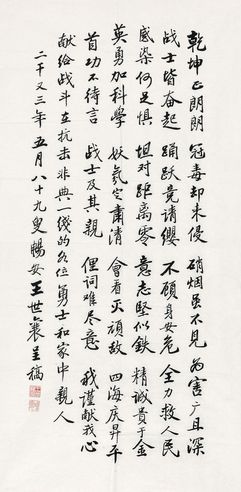 乾坤正朗朗 冠毒却来侵 硝烟虽不见 为害广且深
战士皆奋起 踊跃竞请缨 不顾身安危 全力救人民
感染何足惧 坦对距离零 意志堅似鉄 精诚贵于金
英勇加科學 妖氛定肅清 会看灭顽敌 四海庆昇平
首功不待言 战士及其親 俚词难尽意 我谨献我心
献给战斗在抗击非典一线的各位勇士和家中親人
二千又三年五月八十九叟暢安王世襄呈稿